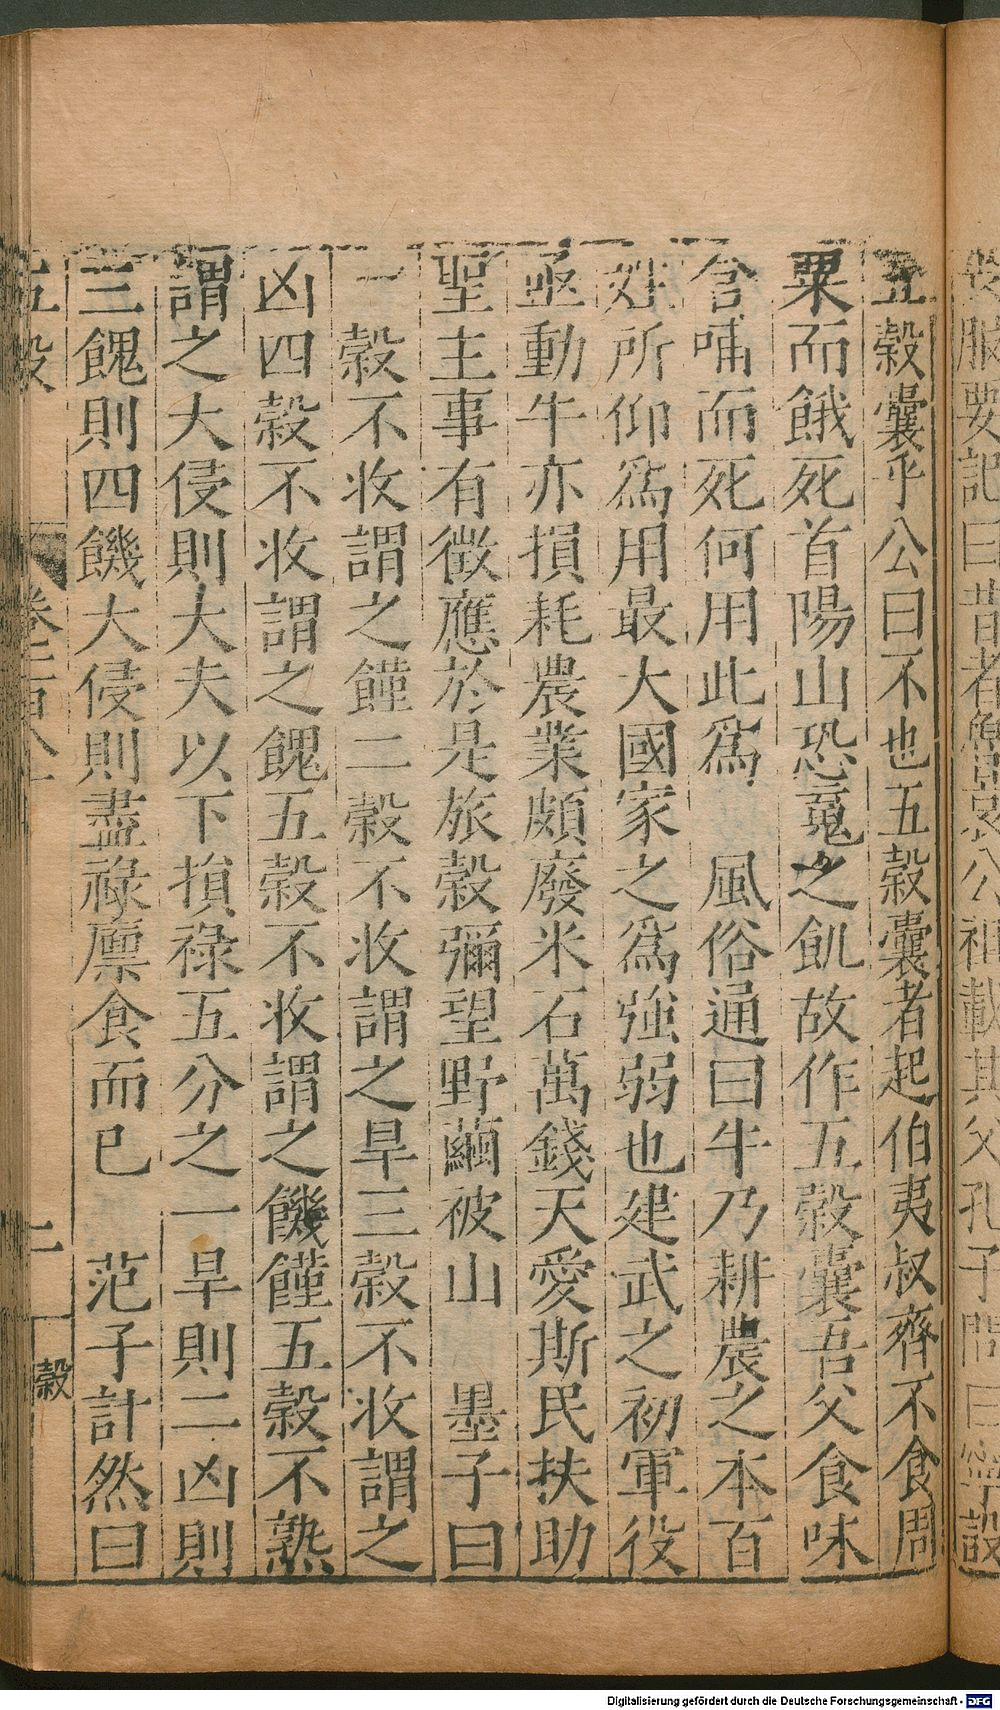 喪服要記曰昔者魯哀公祖載其父孔子問曰寧設
五穀囊乎公曰不也五穀囊者起伯夷叔齊不食周
粟而餓死首陽山恐䰟之飢故作五穀囊吾父食味
含哺而死何用此為　風俗通曰牛乃耕農之本百
姓所仰為用最大國家之為強弱也建武之初軍役
亟動牛亦損耗農業頗廢米石萬錢天愛斯民扶助
聖主事有徵應於是旅穀彌望野繭被山　墨子曰
一穀不收謂之饉二穀不收謂之旱三穀不收謂之
凶四穀不收謂之餽五穀不收謂之饑饉五穀不熟
謂之大侵則大夫以下損祿五分之一旱則二凶則
三餽則四饑大侵則盡祿廩食而已　范子計然曰
五穀
卷二百八十
二
穀
Digitalisierung gefördert durch die Deutsche Forschungsgemeinschaft - DFG